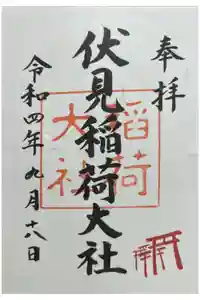 奉拝
伏見稲荷大社
令和四年九月十八日
稲荷
大社